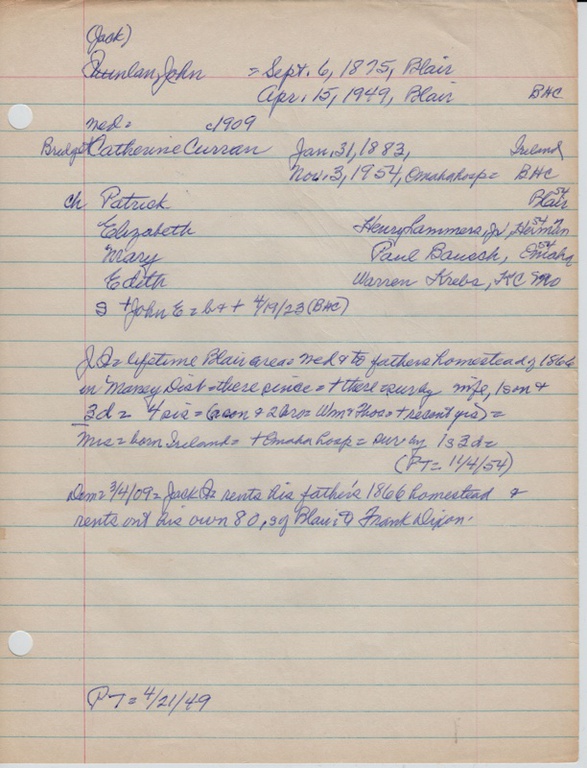 (Jack)
John = Sept. 6, 1875, Blair
Apr. 15, 1949, Blair BHC
med = c1909
Bridget Catherine Curran Jan, 31, 1883, Ireland
Nov. 3, 1954, Omaha hosp = BHC
ch Patrick Blair 54
Elizabeth Henry Lammers, Jr, Herman 54
Mary Paul Bausch, Omaha 54
Edith Warren Krebs, KC Mo
S + John E = b & + 4/19/23 (BHC)
= lifetime Blair area = med & to fathers homestead of 1866
in Money Dist = there since = + there = sur by wife, 1 son &
3 d = 4 sis = (a son & 2 bro = Wm & Thos = + recent yrs) =
Mrs = born Ireland = + Omaha hosp = sur by 1 s 3 d =
(PT = 11/4/54)
Dem = 3/4/09 = Jack rents his father's 1866 homestead &
rents out his own 80, sq Blair, to Frank Dixon.
PT = 4/21/49